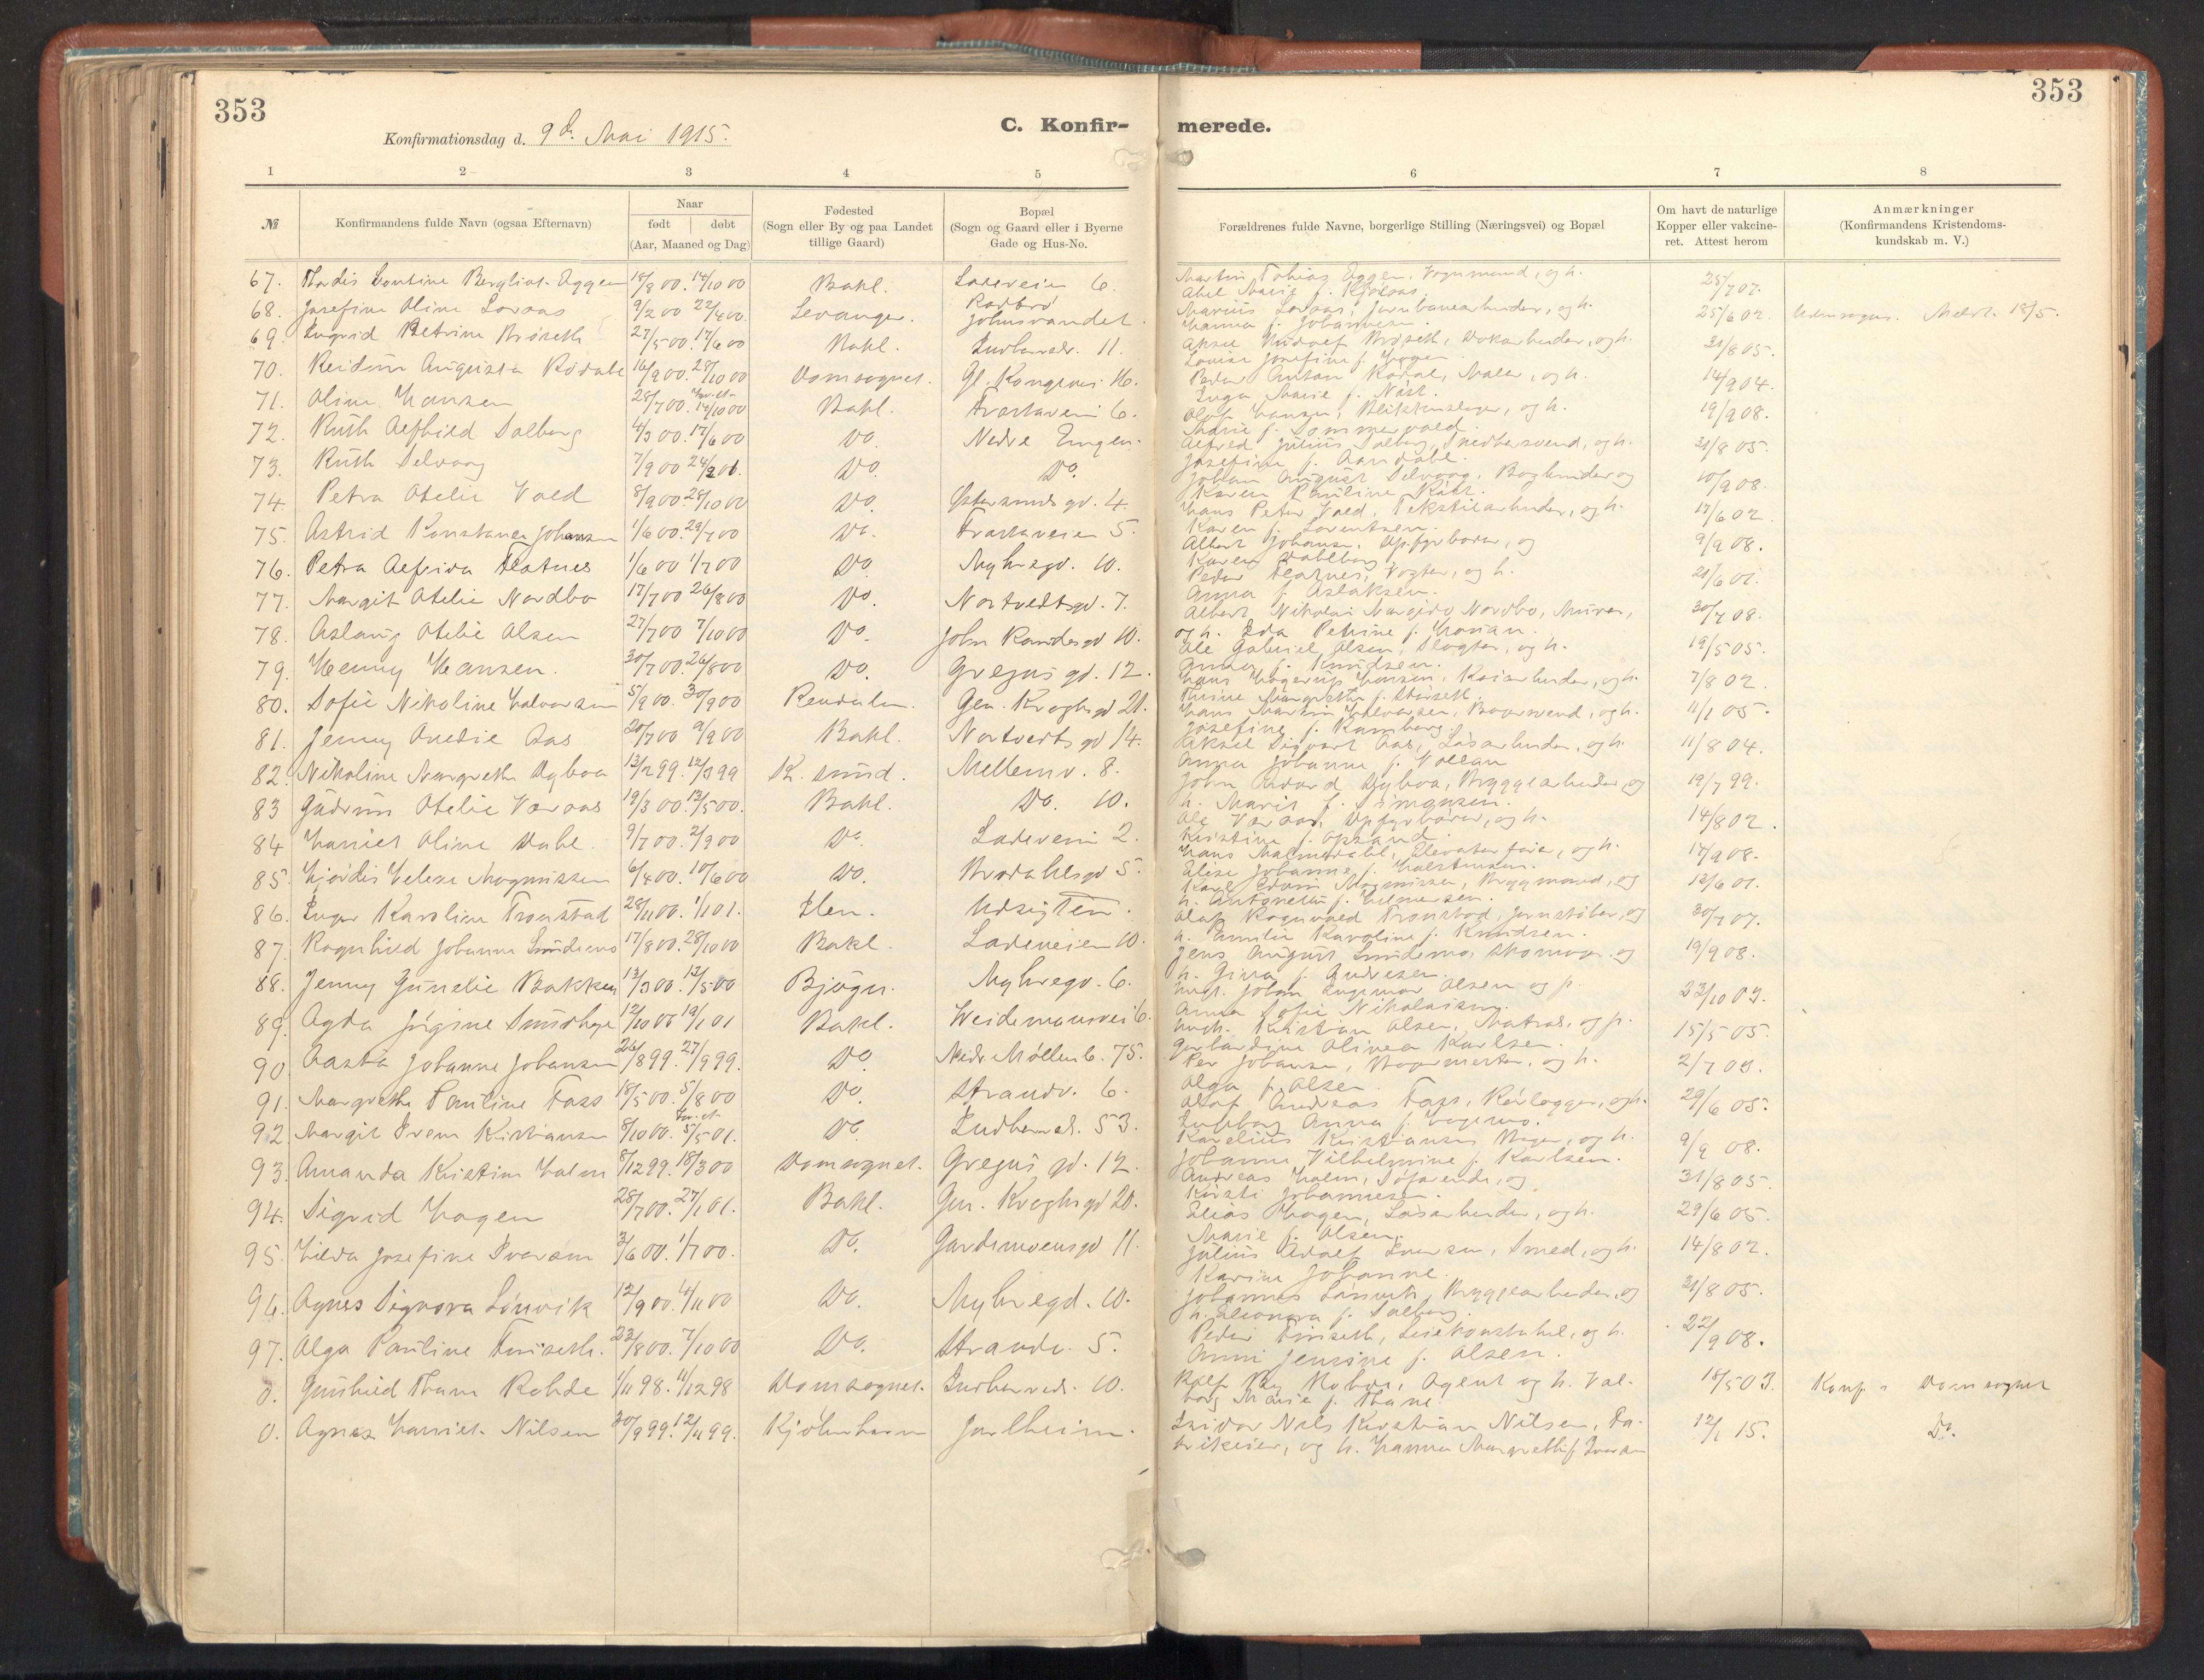 353
353
Konfirmationsdag d. 9d. Mai 1915.
C. Konfir-
merede.
1 2 3 4 5 6 7 8
№
Konfirmandens fulde Navn (ogsaa Efternavn)
Naar
født
døbt
(Aar, Maaned og Dag)
Fødested
(Sogn eller By og paa Landet
tillige Gaard)
Bopæl
(Sogn og Gaard eller i Byerne
Gade og Hus-No.
Forældrenes fulde Navne, borgerlige Stilling (Næringsvei) og Bopæl
Om havt de naturlige
Kopper eller vakcine-
ret. Attest herom
Anmærkninger
(Konfirmandens Kristendoms-
kundskab m. V.)
67. Bergliot Eggen 18/8 00. 14/10 00 Bakl. Ladeveien 6. Martin Tobias Eggen, Vognmand, og h. 25/7 07.
68. Josefine Oline Loraas 9/2 00 22/4 00. Levanger. Johnsvandet. Marius Loraas, Jernbanearbeider, og h. Hanna f. Johannesen. 25/6 02. Udensogns. 18/5.
69. Ingrid Petrine Brøseth 27/5 00. 17/6 00 Bakl. Indherredv. 11. Aksel Rudolf Brøseth, og h. Louise Josefine f. Hagen. 31/8 05.
70. Reidun Augusta Rødahl 16/9 00. 28/10 00 Domsognet. Gl. Kongevei 16. Peder Anton Rødal, Maler, og h. Inga Marie f. Næst. 14/9 04.
71. Oline Hansen 28/7 00. 14/10 00 Bakl. 6. Olaf Hansen, Blikkenslager, og h. Marie f. Sommervold. 19/9 08.
72. Ruth Alfhild Solberg 4/3 00. 17/6 00 Do. Nedre Enggn. Alfred Julius Solberg, Snedkersvend, og h. Josefine f. Aandahl. 31/8 05.
73. Ruth Selvaag 7/9 00 24/2 01. Do. Do. Johan August Selvaag, Bogbinder og Karen Pauline 10/9 08.
74. Petra Otelie Vold 8/9 00 28/10 00 Do. Østersunds gd. 4. Hans Peter Vold, Tekstilarbeider, og h. Karen f. Lorentsen. 17/6 02.
75. Astrid Konstance Johansen 1/6 00. 29/7 00 Do. 5. Albert Johansen, Opfyrbører, og Karen Dahlberg. 9/9 08.
76. Petra Alfrida Flatnes 1/6 00 1/7 00 Do Myhregd. 10. Peder Flatnes, Vogter, og h. Anna f. Aslaksen. 21/6 01.
77. Margit Otelie Nordbo 17/7 00 26/8 00 Do. Nortvedtsgd. 7. Albert Nikolai Nordbo, Murer, og h. Ida Petrine f. 30/7 08.
78. Aslaug Otelie Olsen 27/7 00 7/10 00 Do. 10. Ole Gabriel Olsen, Slagter, og h. Anna f. Knudsen. 19/5 05.
79. Henny Hansen. 30/7 00. 26/8 00 Do. Gregus gd. 12. Hans Hagerup Hansen, og h. Margrethe f. Størseth. 7/8 02.
80. Sofie Nikoline Halvorsen 5/9 00. 30/9 00 Rendalen. Gen. Kroghsgd 21. Hans Martin Halvorsen, og h. Josefine f. Ramberg. 11/1 05.
81. Jenny Onedie Aas 20/7 00 9/9 00 Bakl. Nortvedtsgd 14. Aksel Sigvart Aas, Løsarbeider, og h. Anna Johanne f. Vollan 11/8 04.
82. Nikoline Margrethe Dyboa 13/2 99. 12/3 99 K. sund. Mellemv. 8. John Edvard Dyboa, Bryggearbeider, og h. Marie f. Simonsen. 19/7 99.
83 Gudrun Otelie Voraas 19/3 00. 13/5 00. Bakl. Do. 10. Ole Voraas, Opfyrbører, og h. Kristine f. Opsand. 14/8 02.
84 Harriet Oline Dahl. 9/7 00. 2/9 00 Do. Ladeveien 2. Hans Dahl, og h. Elise Johanne f. 17/9 08.
85. Hjørdis Helene Magnussen 6/4 00. 10/6 00 Do. Brodahlsgd 5. Karl Edvin Magnussen, og h. Antonette f. Hilmersen. 12/6 01.
86. Inger Karoline Tronstad 28/11 00. 1/1 01. Ilen. Udsigten. Olaf Ragnvald Tronstad, Jernstøber, og h. Emilie Karoline f. Knudsen. 30/7 07.
87. Ragnhild Johanne Sundemo 17/8 00. 28/10 00 Bakl. Ladeveien 10. Jens August Sundemo, Skomager og h. Gina f. Andresen. 19/9 08.
88. Jenny Gunelie Bakken 13/3 00. 12/5 00 Bjugn. Myhregd. 6. Johan Ingemar Olsen og p. Anna Sofie Nikolaisen. 23/10 03.
89. Agda Jørgine Smidhege 12/10 00 19/1 01 Bakl. Weidemannsvei 6. Kristian Olsen, Matros, og p. Gerhardine Olinea Karlsen. 15/5 05.
90 Aasta Johanne Johansen 26/8 99. 27/9 99. Do Nedr Møllenb. 75. Per Johansen, og h. Olga f. Olsen. 2/7 03.
91. Margrethe Pauline Foss 18/5 00. 5/8 00 Do. Strandv. 6. Olaf Andreas Foss, Rørlegger, og h. Ingeborg Anna f. 29/6 05.
92 Margit Svem Kristiansen 8/10 00. 5/5 01. Do. Indherredv. 53. Karelius Kristiansen, og h. Johanne Vilhelmine f. Karlsen. 9/9 08.
93. Amanda Kristine Holm 8/12 99. 18/3 00 Domsognet. Gregus gd. 12. Andreas Holm, Søfarende, og Kirsti Johannesen. 31/8 05.
94. Sigrid Hagen 28/7 00. 27/1 01. Bakl. Gen. Kroghsgd 20. Elias Hagen, Løsarbeider, og h. Marie f. Olsen. 29/6 05.
95. Hilda Josefine Ivarsen 3/6 00. 1/7 00. Do. Gardemoensgd 11. Julius Adolf Iversen, Smed, og h. Karine Johanne. 14/8 02.
96. Agnes Signora Lønvik 12/9 00. 4/11 00 Do. Myhregd. 10. Johannes Lønvik, Bryggearbeider, og h. Eleonora f. Solberg. 31/8 05.
97. Olga Pauline Finseth. 23/8 00. 7/10 00 Do. Strandv. 5. Peder Finseth, og h. Anni Jensine f. Olsen. 22/9 08.
0. Gunhild Thane Rohde 1/11 98. 11/12 98 Domsognet. Indherredv. 10. Rolf Rohde, Agent og h. Val-
borg Marie f. Thane. 18/5 03. Konf. i Domsognet
0. Agnes Harriet Nilsen 30/9 99. 12/11 99. Kjøbenhavn Jarlheim. Isidor Nils Kristian Nilsen, Fa-
brikeier, og h. Hanna Margrethe f. Iversen 12/1 15. Do.